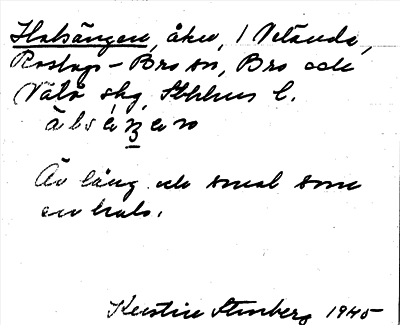 Halsängen, åker, 1 Vetända,
Roslags-Bro sn, Bro och
Vätö skg, Sthlms l.
Är lång och smal som
en hals.
Kerstin Stenberg 1945